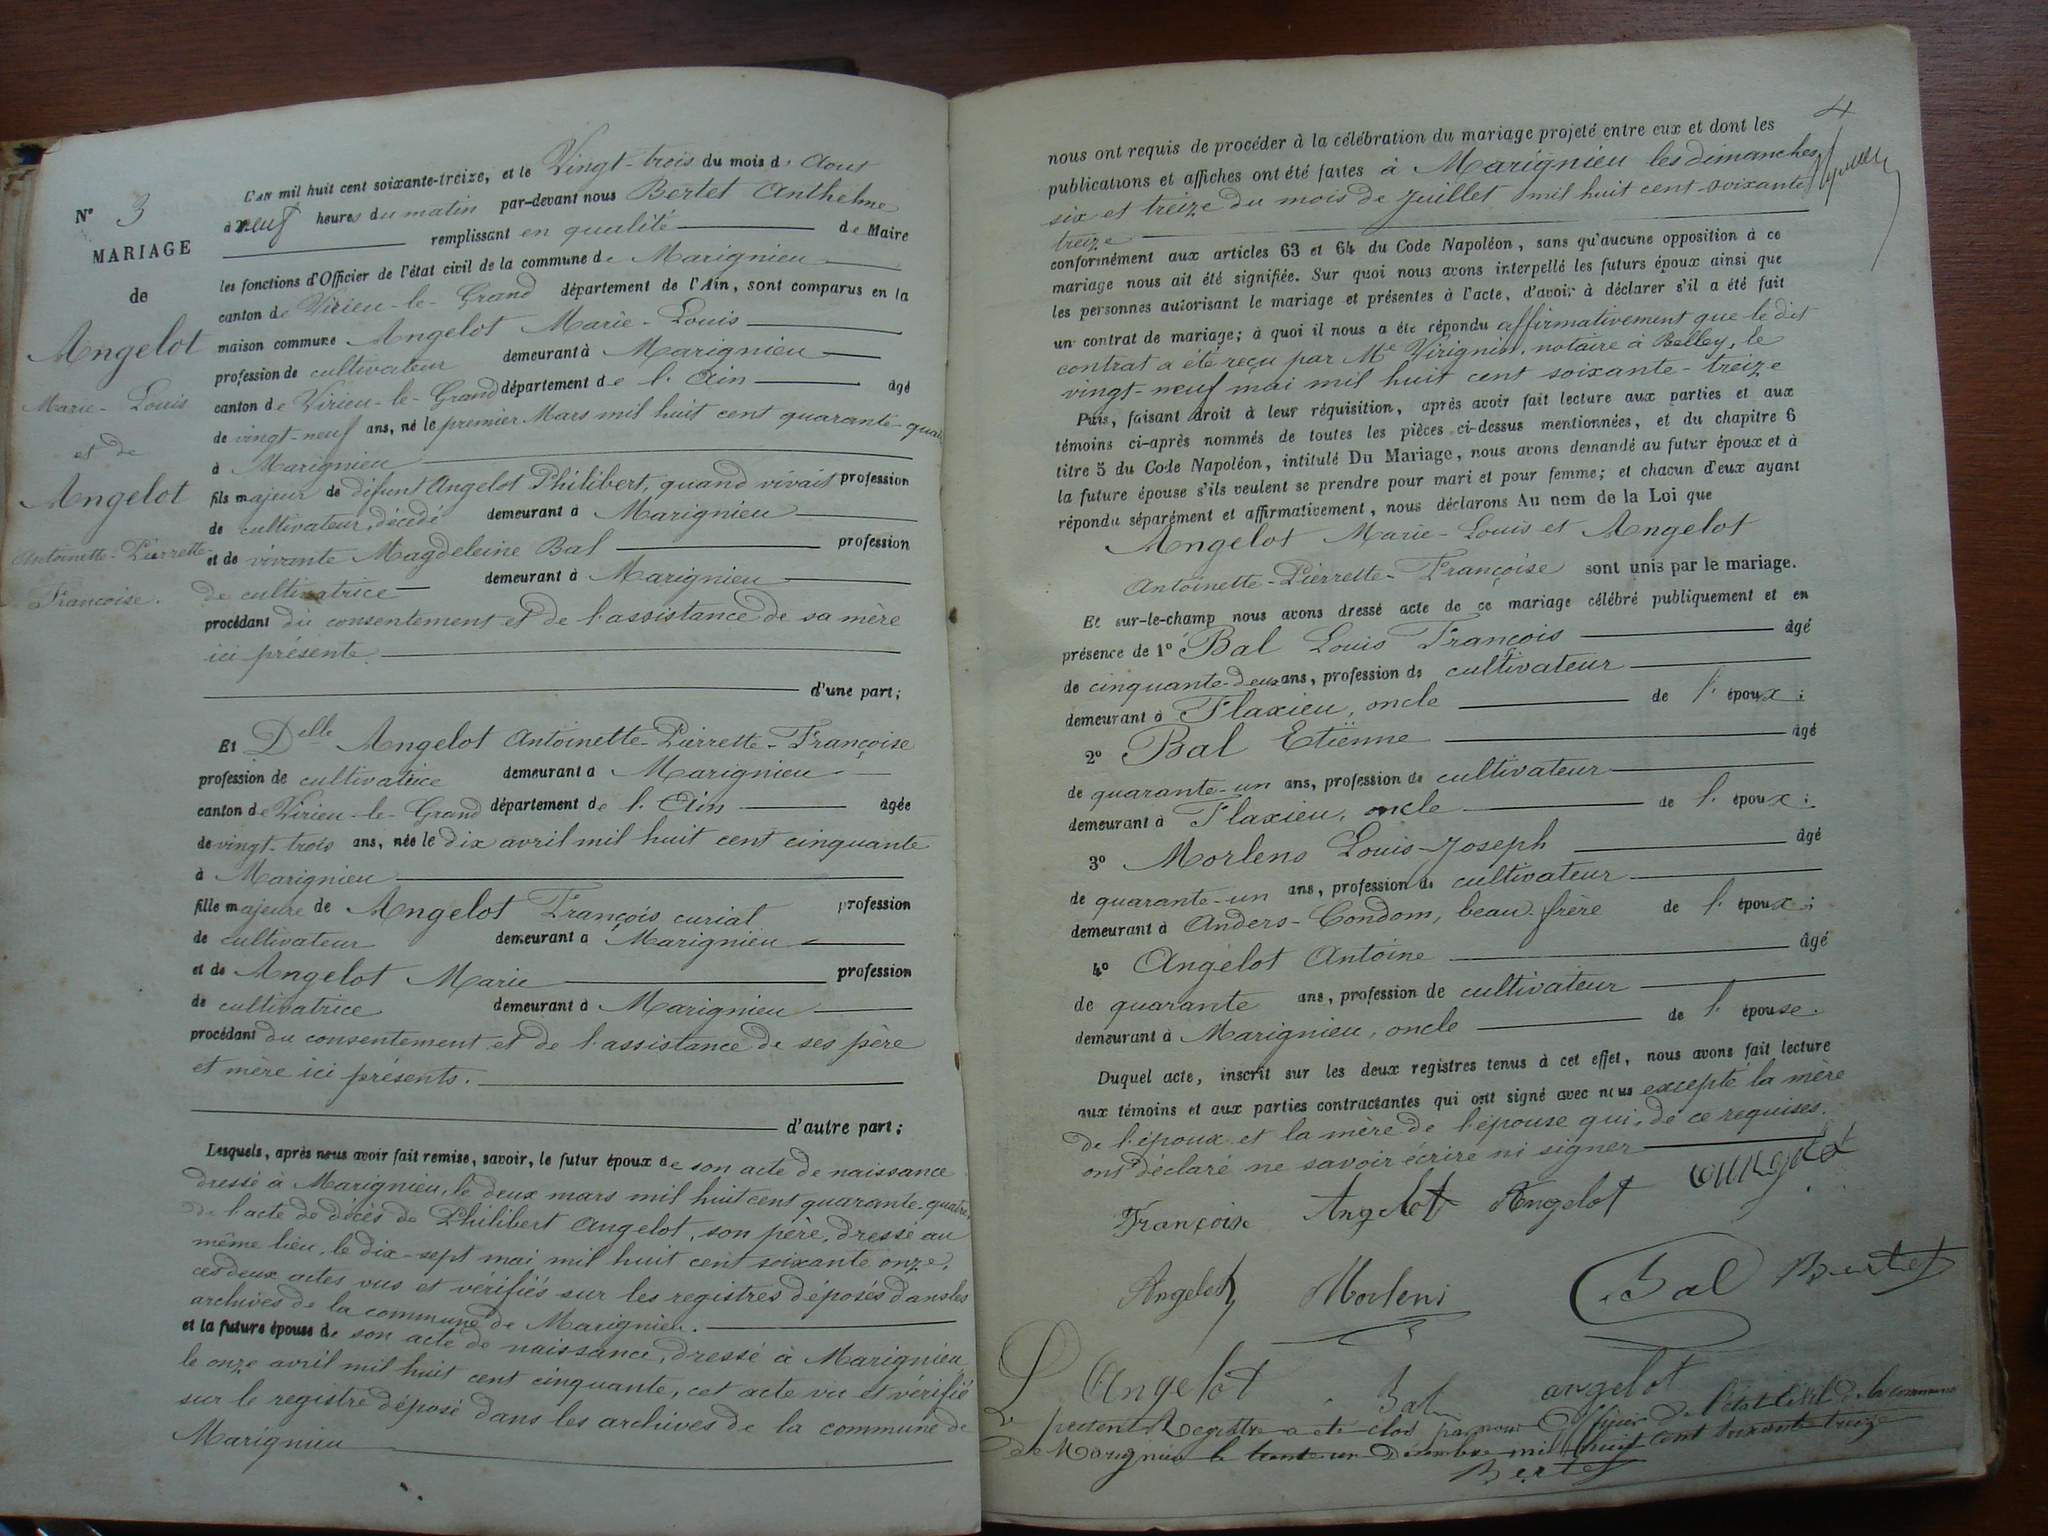 N° 3
MARIAGE
de
Angelot
Marie-Louis
et de
Angelot
Antoinette-Pierrette-
Françoise.
L'an mil huit cent soixante-treize, et le Vingt-trois du mois d' Aout
à neuf heures du matin par-devant nous Bertet Anthelme
remplissant en qualité de Maire
les fonctions d'Officier de l'état civil de la commune de Marignieu
canton de Virieu-le-Grand département de l'Ain, sont comparus en la
maison commune Angelot Marie-Louis
profession de cultivateur demeurant à Marignieu
canton de Virieu-le-Grand département de l'Ain âgé
de vingt-neuf ans, né le premier Mars mil huit cent quarante-quatre
à Marignieu
fils majeur de défunt Angelot Philibert, quand vivait profession
de cultivateur, décédé demeurant à Marignieu
et de vivante Magdeleine Bal profession
de cultivatrice demeurant à Marignieu
procédant du consentement et de l'assistance de sa mère
ici présente
d'une part;
Et Delle Angelot Antoinette-Pierrette-Françoise
profession de cultivatrice demeurant à Marignieu
canton de Virieu-le-Grand département de l'Ain âgée
de vingt-trois ans, née le dix avril mil huit cent cinquante
à Marignieu
fille majeure de Angelot François curiat profession
de cultivateur demeurant à Marignieu
et de Angelot Marie profession
de cultivatrice demeurant à Marignieu
procédant du consentement et de l'assistance de ses père
et mère ici présents.
d'autre part;
Lesquels, après nous avoir fait remise, savoir, le futur époux de son acte de naissance
dressé à Marignieu, le deux mars mil huit cent quarante-quatre,
de l'acte de décès de Philibert Angelot, son père, dressé au
même lieu, le dix-sept mai mil huit cent soixante onze,
ces deux actes vus et vérifiés sur les registres déposés dans les
archives de la commune de Marignieu.
et la future épouse de son acte de naissance, dressé à Marignieu
le onze avril mil huit cent cinquante, cet acte vu et vérifié
sur le registre déposé dans les archives de la commune de
Marignieu
4
nous ont requis de procéder à la célébration du mariage projeté entre eux et dont les
publications et affiches ont été faites à Marignieu les dimanches
six et treize du mois de Juillet mil huit cent soixante
treize
conformément aux articles 63 et 64 du Code Napoléon, sans qu'aucune opposition à ce
mariage nous ait été signifiée. Sur quoi nous avons interpellé les futurs époux ainsi que
les personnes autorisant le mariage et présentes à l'acte, d'avoir à déclarer s'il a été fait
un contrat de mariage; à quoi il nous a été répondu affirmativement que le dit
contrat a été reçu par Me Virignin, notaire à Belley, le
vingt-neuf mai mil huit cent soixante-treize
Puis, faisant droit à leur réquisition, après avoir fait lecture aux parties et aux
témoins ci-après nommés de toutes les pièces ci-dessus mentionnées, et du chapitre 6
titre 5 du Code Napoléon, intitulé Du Mariage, nous avons demandé au futur époux et à
la future épouse s'ils veulent se prendre pour mari et pour femme; et chacun d'eux ayant
répondu séparément et affirmativement, nous déclarons Au nom de la Loi que
Angelot Marie-Louis et Angelot
Antoinette-Pierrette-Françoise sont unis par le mariage.
Et sur-le-champ nous avons dressé acte de ce mariage célébré publiquement et en
présence de 1° Bal Louis François âgé
de cinquante-deux ans, profession de cultivateur
demeurant à Flaxieu, oncle de l'époux;
2° Bal Etienne âgé
de quarante-un ans, profession de cultivateur
demeurant à Flaxieu, oncle de l'époux;
3° Morlens Louis-Joseph âgé
de quarante-un ans, profession de cultivateur
demeurant à Anders-Condom, beau-frère de l'époux;
4° Angelot Antoine âgé
de quarante ans, profession de cultivateur
demeurant à Marignieu, oncle de l'épouse.
Duquel acte, inscrit sur les deux registres tenus à cet effet, nous avons fait lecture
aux témoins et aux parties contractantes qui ont signé avec nous excepté la mère
de l'époux et la mère de l'épouse qui, de ce requises,
ont déclaré ne savoir écrire ni signer
Françoise Angelot Angelot angelot
Angelot Morlens Bal Bertet
L Angelot Bal angelot
Le présent Registre a été clos par nous Officier de l'état Civil de la commune
de Marignieu le trente un Décembre mil huit cent soixante treize
Bertet